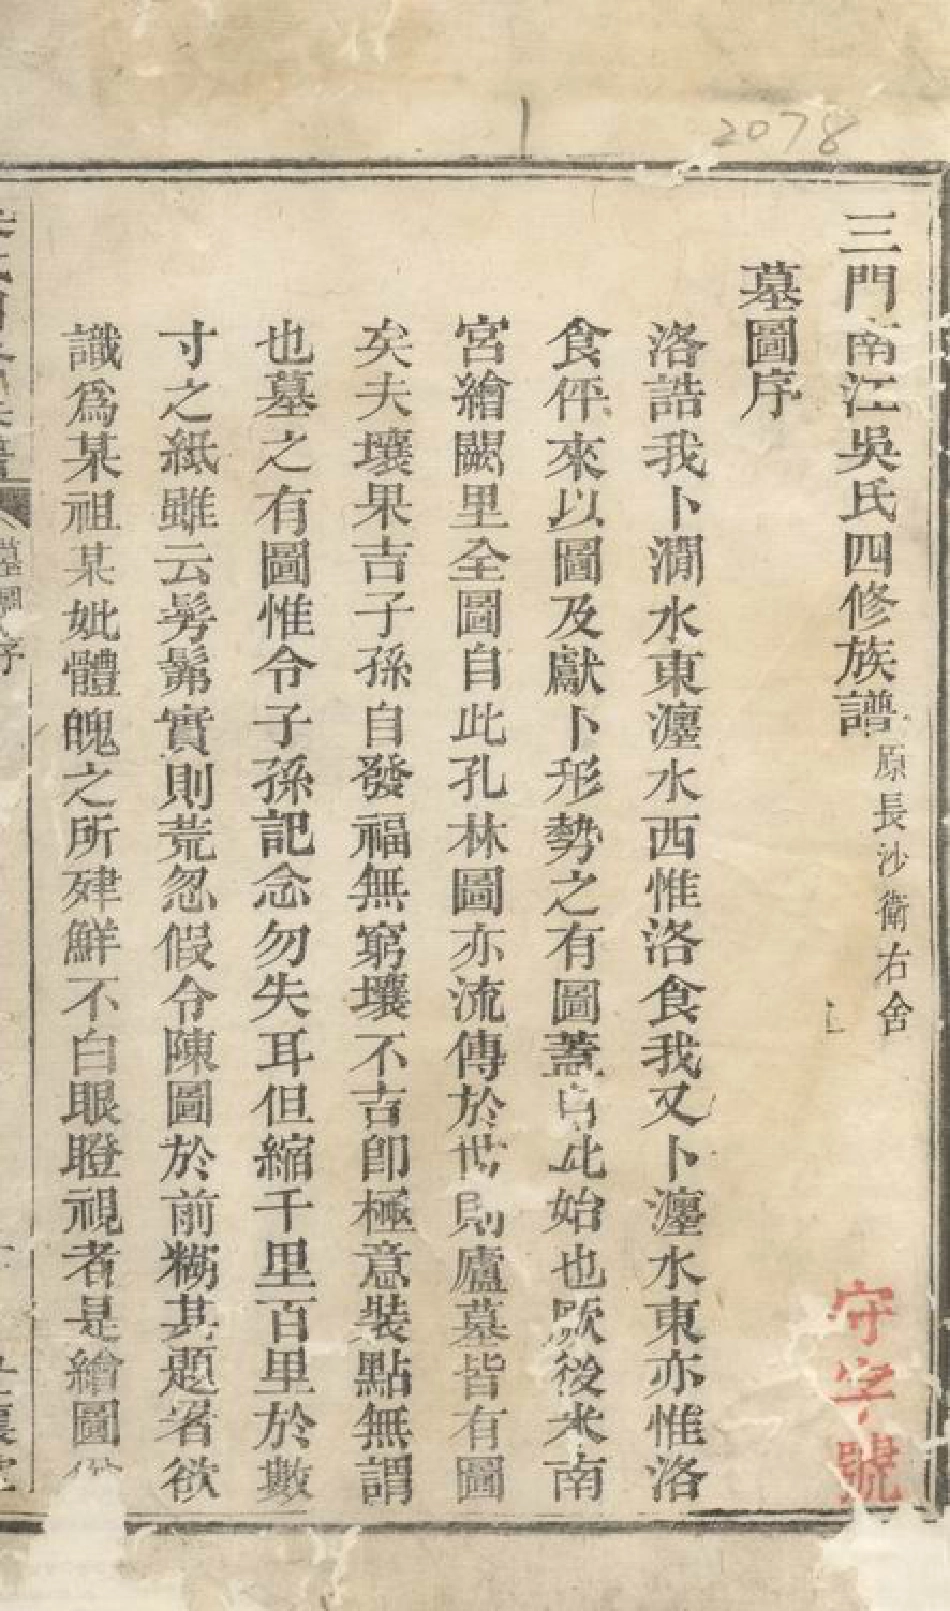 2078
三門南江吳氏四修族譜 原長沙衛右舍
守字號
墓圖序
洛誥我卜澗水東瀍水西惟洛食我又卜瀍水東亦惟洛
食伻來以圖及獻卜形勢之有圖蓋自此始也厥後米南
宮繪闕里全圖自此孔林圖亦流傳於世則廬墓皆有圖
矣夫壤果吉子孫自發福無窮壤不吉卽極意裝點無謂
也墓之有圖惟令子孫記念勿失耳但縮千里百里於數
寸之紙雖云髣髴實則荒忽假令陳圖於前糊其題者欲
識爲某祖某妣體魄之所肂鮮不白眼瞪視者是繪圖
墓圖序